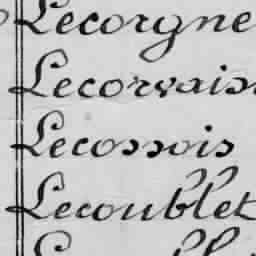 Lecorgne
Lecorvais
Lecossois
Lecoublet